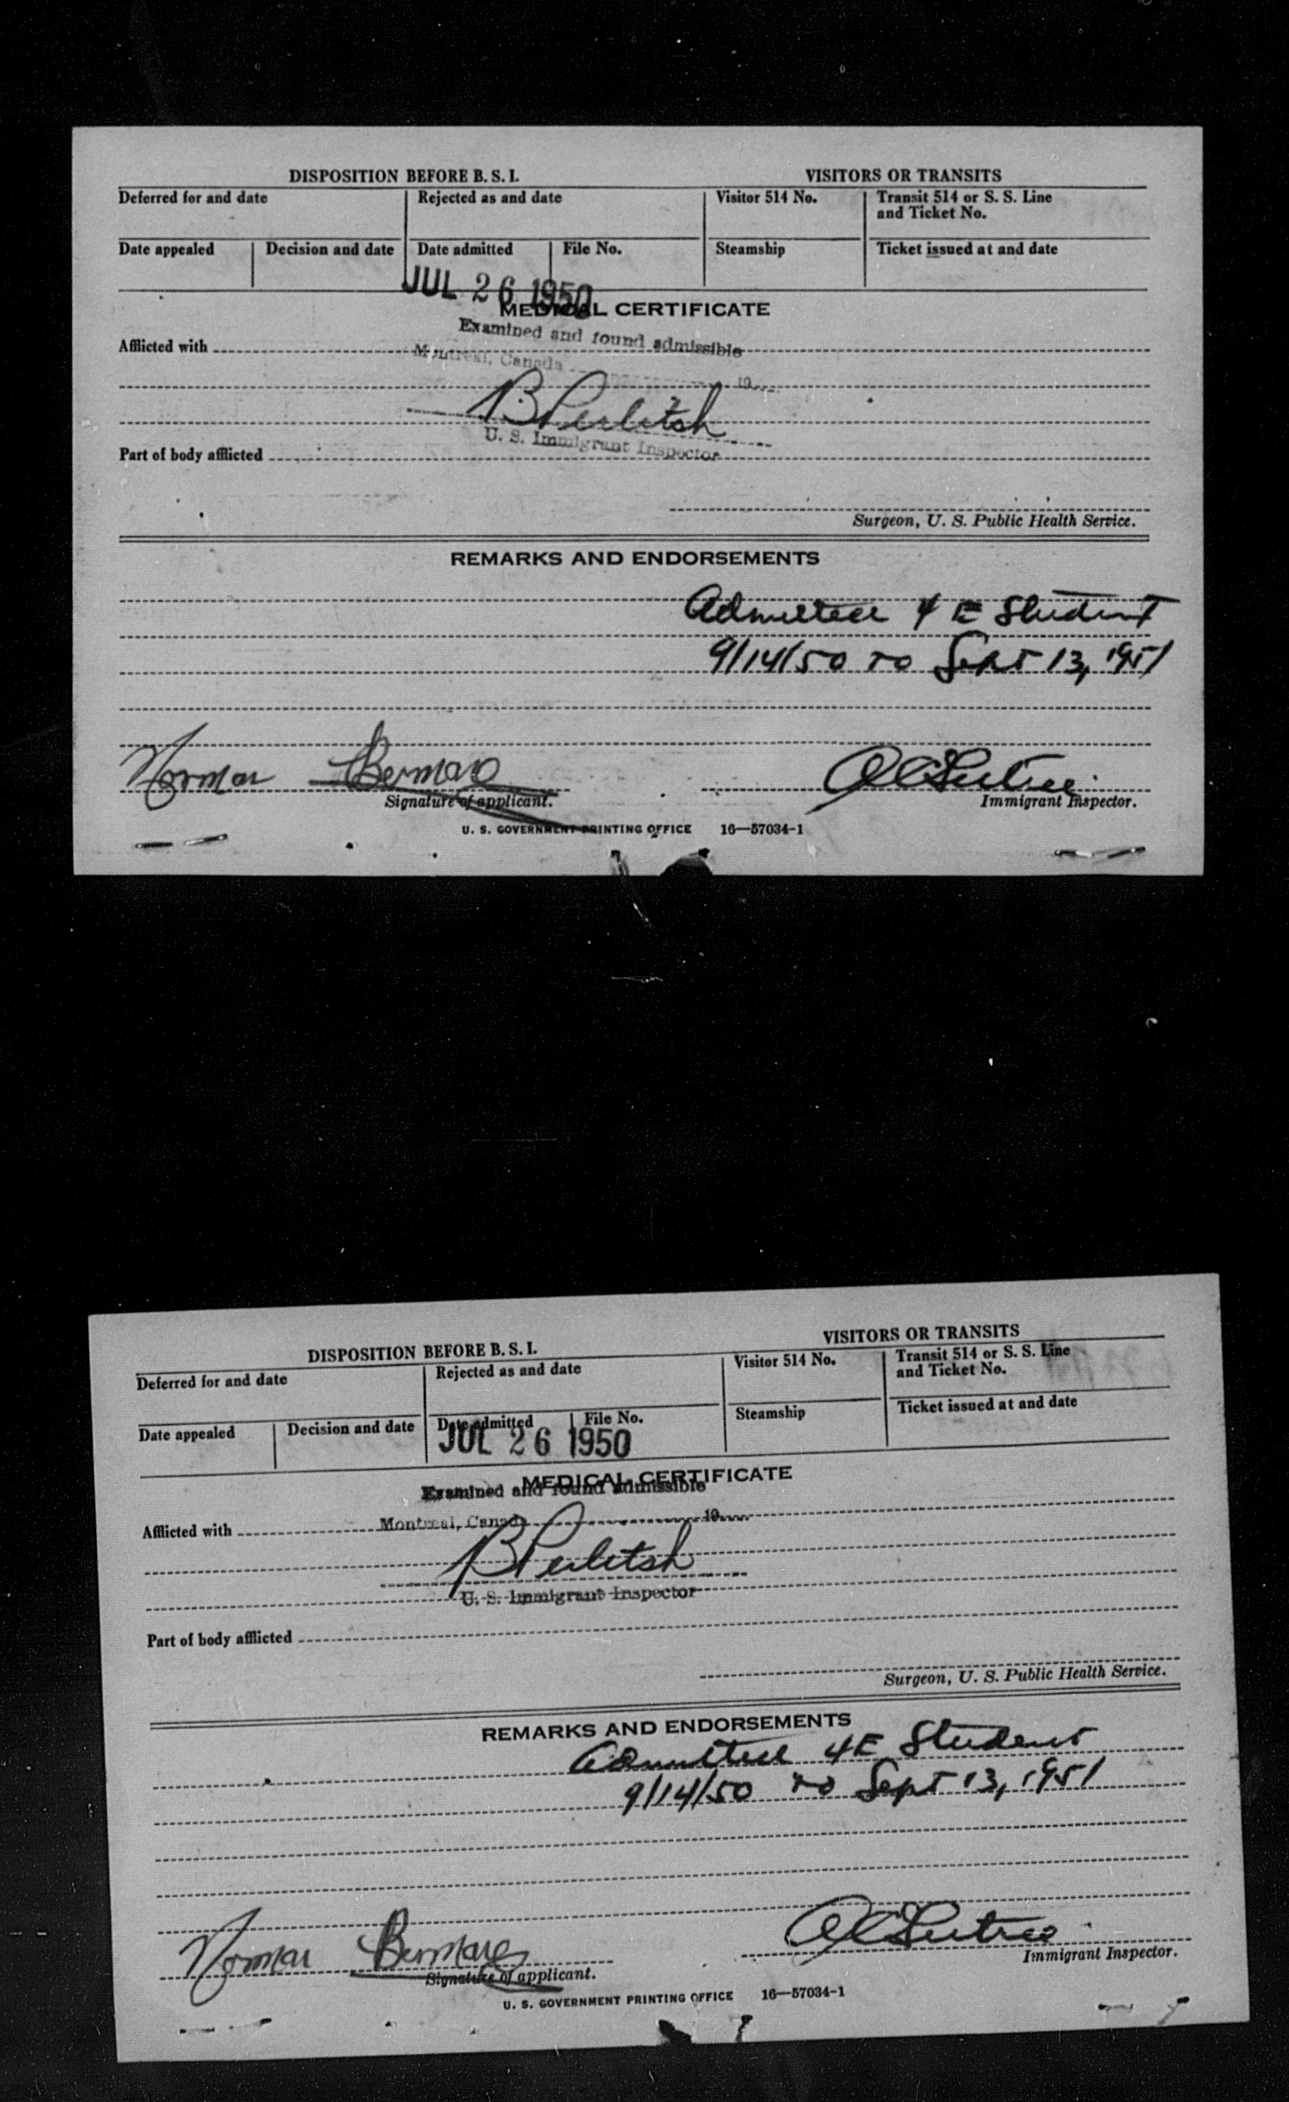 DISPOSITION BEFORE B. S. I.
VISITORS OR TRANSITS
Deferred for and date
Rejected as and date
Visitor 514 No.
Transit 514 or S. S. Line
and Ticket No.
Date appealed
Decision and date
Date admitted
File No.
Steamship
Ticket issued at and date
JUL 26 1950
MEDICAL CERTIFICATE
Examined and found admissible
Afflicted with
Montreal, Canada 19
B Perlitsh
U. S. Immigrant Inspector
Part of body afflicted
Surgeon, U. S. Public Health Service.
REMARKS AND ENDORSEMENTS
Admitted 4 E Student
9/14/50 to Sept 13, 1951
Norman
Signature of applicant.
Immigrant Inspector.
U. S. GOVERNMENT PRINTING OFFICE 16—57034-1
DISPOSITION BEFORE B. S. I.
VISITORS OR TRANSITS
Deferred for and date
Rejected as and date
Visitor 514 No.
Transit 514 or S. S. Line
and Ticket No.
Date appealed
Decision and date
Date admitted
File No.
Steamship
Ticket issued at and date
JUL 26 1950
MEDICAL CERTIFICATE
Examined and found admissible
Afflicted with
Montreal, Canada 19
B Perlitsh
U. S. Immigrant Inspector
Part of body afflicted
Surgeon, U. S. Public Health Service.
REMARKS AND ENDORSEMENTS
Admitted 4E Student
9/14/50 to Sept 13, 1951
Norman
Signature of applicant.
Immigrant Inspector.
U. S. GOVERNMENT PRINTING OFFICE 16—57034-1